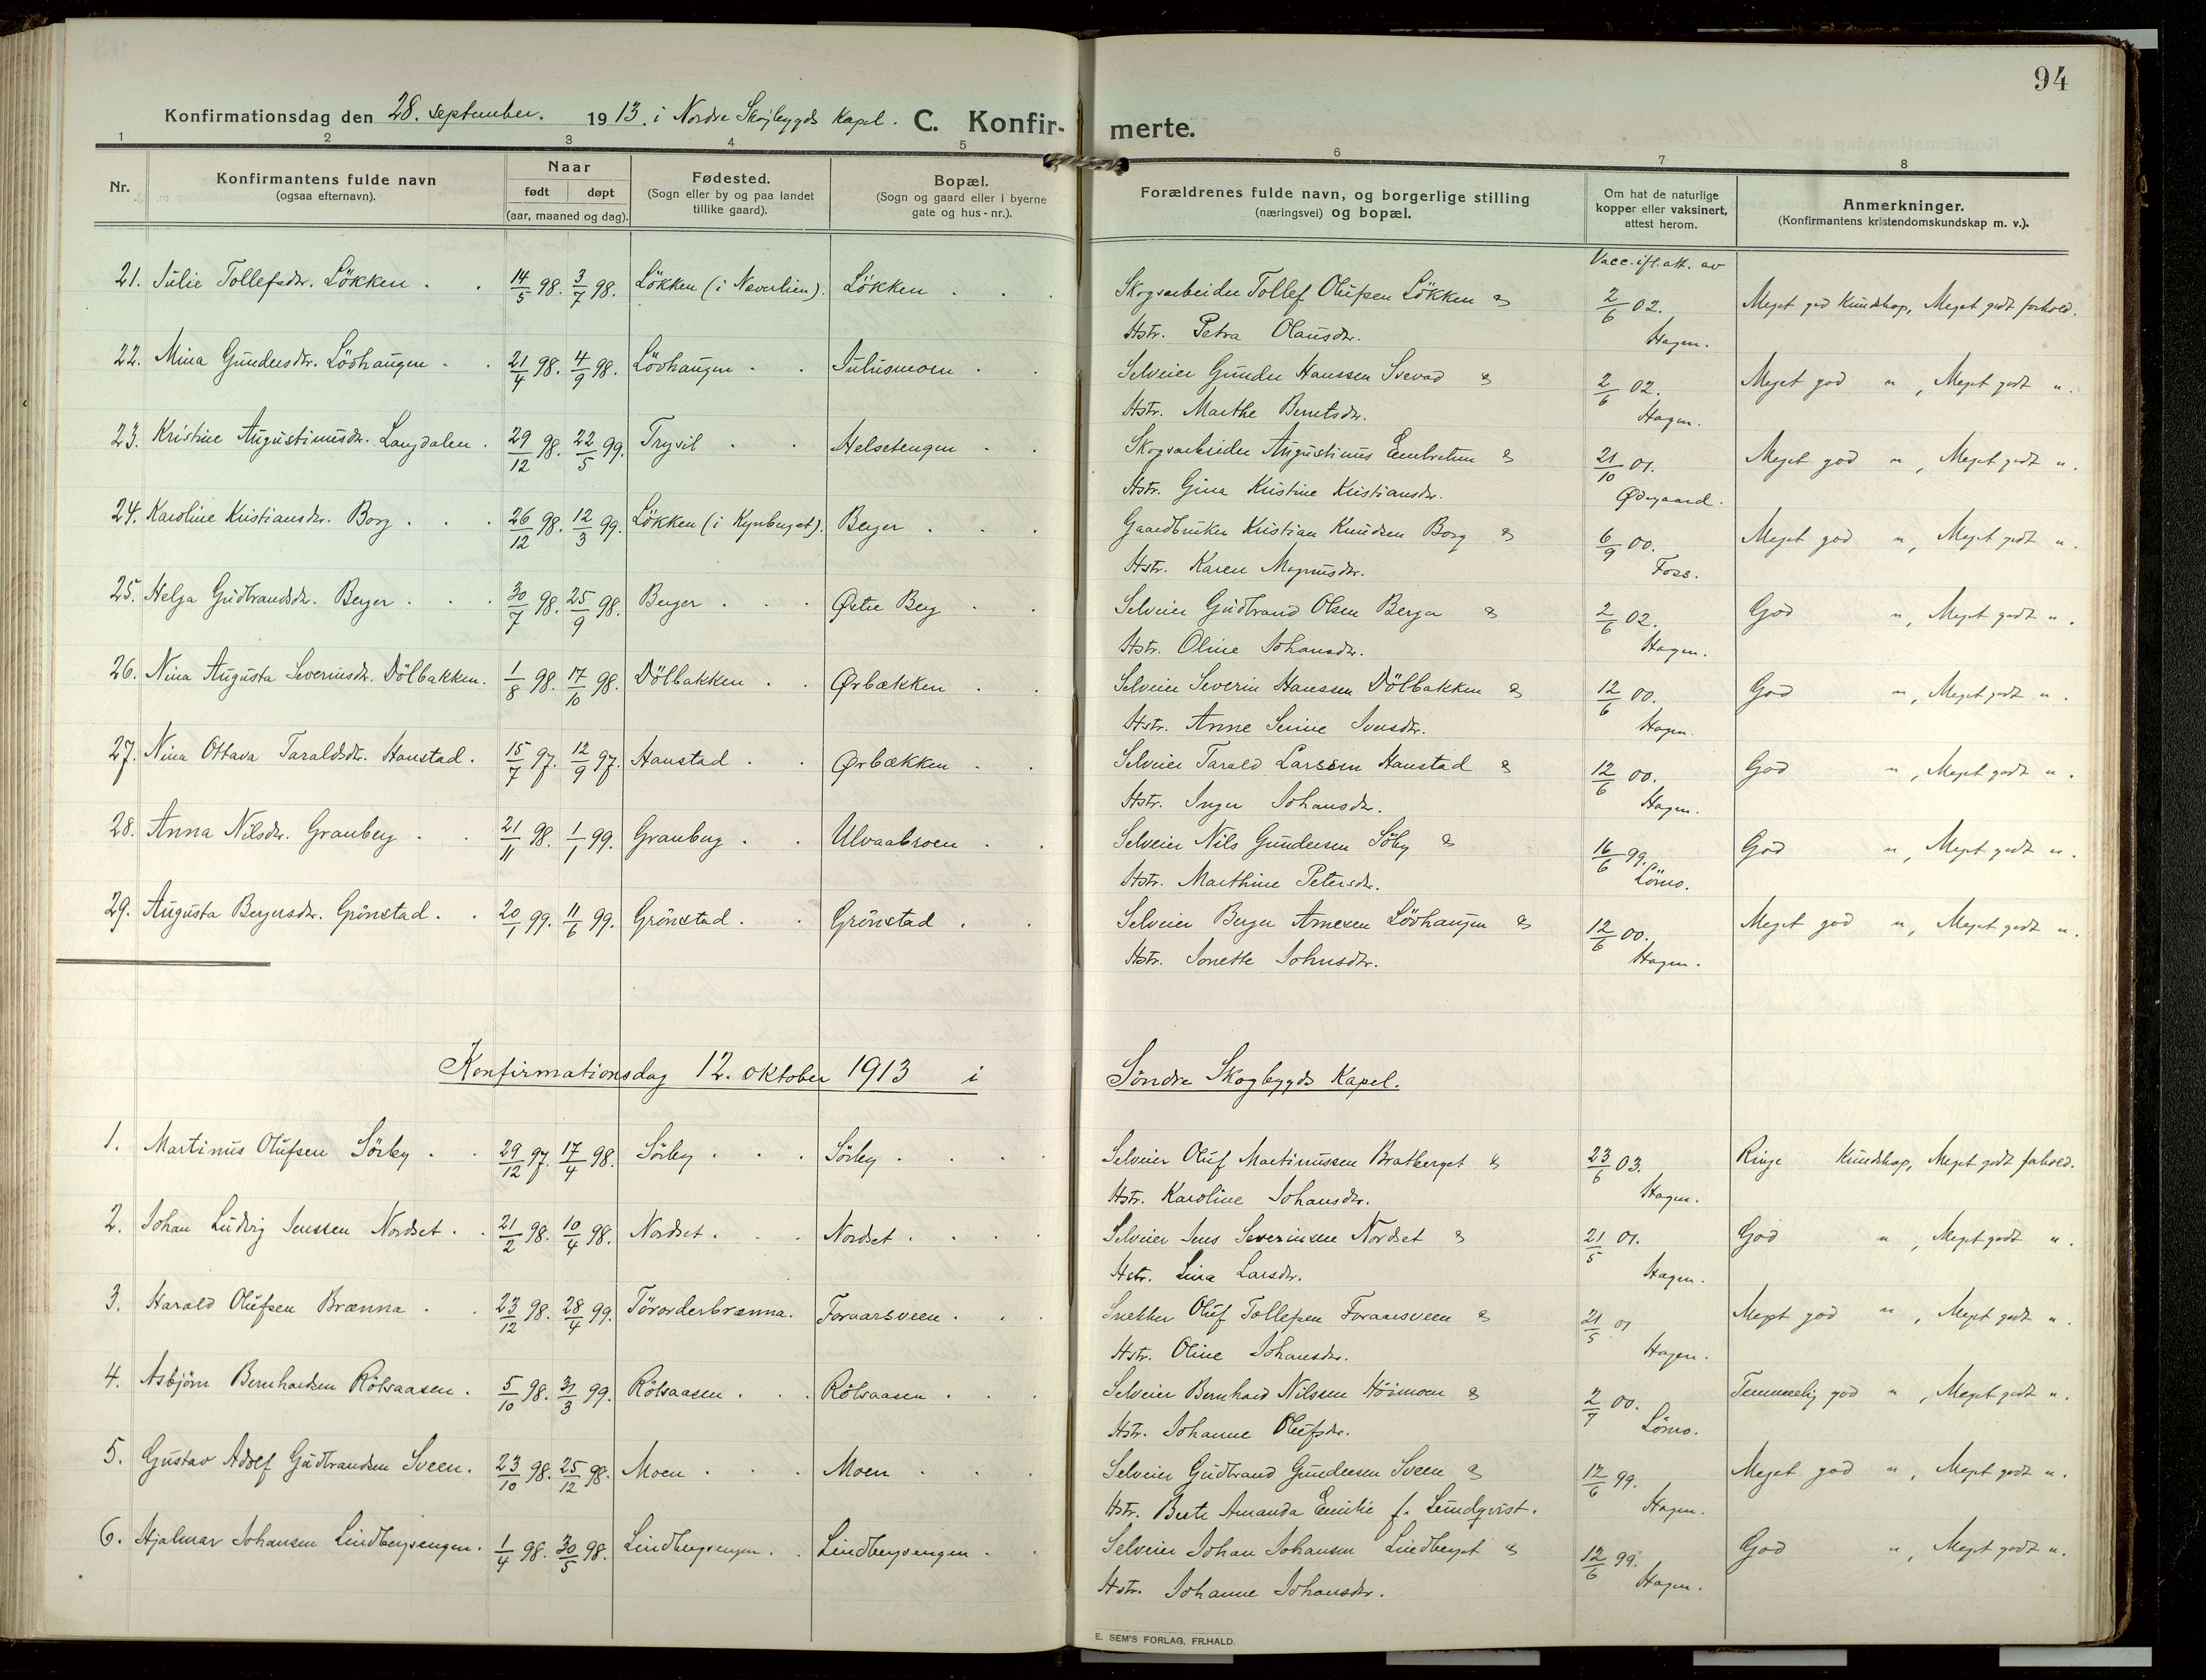 94
Konfirmationsdag den 28. september. 1913. i Nordre Skogbygds Kapel. C. Konfir-merte.
1 2 3 4 5 6 7 8
Nr.
Konfirmantens fulde navn
(ogsaa efternavn).
Naar
født døpt
(aar, maaned og dag).
Fødested.
(Sogn eller by og paa landet
tillike gaard).
Bopæl.
(Sogn og gaard eller i byerne
gate og hus-nr.).
Forældrenes fulde navn, og borgerlige stilling
(næringsvei) og bopæl.
Om hat de naturlige
kopper eller vaksinert,
attest herom.
Anmerkninger.
(Konfirmantens kristendomskundskap m. v.).
Vacc. ifl. att. av
21. Julie Tollefsdtr. Lökken . . 14/5 98. 3/7 98. Lökken (i Neverlien). Lökken . . . Skogsarbeider Tollef Olufsen Lökken & 2/6 02. Meget god Kundskap, Meget godt forhold.
Hstr. Petra Olausdtr. Hagen.
22. Mina Gundersdtr. Lövhaugen . . 21/4 98. 4/9 98. Lövhaugen . . Julusmoen . . Selveier Gunder Hanssen Svevad & 2/6 02. Meget god " , Meget godt ".
Hstr. Marthe Berntsdtr. Hagen.
23. Kristine Augustinusdtr. Langdalen . 29/12 98. 22/5 99. Trysil . . Helsetengen . . Skogsarbeider Augustinus Embretsen & 21/10 01. Meget god " , Meget godt ".
Hstr. Gina Kristine Kristiansdtr. Ødegaard.
24. Karoline Kristiansdtr. Borg . . . 26/12 98. 12/3 99. Lökken (i Kynberget). Berger . . . Gaardbruker Kristian Knudsen Borg & 6/9 00. Meget god " , Meget godt ".
Hstr. Karen Magnusdtr. Foss.
25. Helga Gudbrandsdtr. Berger . . . 30/7 98. 25/9 98. Berger . . . Østre Berg . . Selveier Gudbrand Olsen Berger & 2/6 02. God " , Meget godt ".
Hstr. Oline Johansdtr. Hagen.
26. Nina Augusta Severinsdtr. Dölbakken. 1/8 98. 17/10 98. Dölbakken . . Ørbækken . . Selveier Severin Hanssen Dölbakken & 12/6 00. God " , Meget godt ".
Hstr. Anne Serine Iversdtr. Hagen.
27. Nina Ottava Taraldsdtr. Hanstad . 15/7 97. 12/9 97. Hanstad . . Ørbækken . . Selveier Tarald Larssen Hanstad & 12/6 00. God " , Meget godt ".
Hstr. Inger Johansdtr. Hagen.
28. Anna Nilsdtr. Granberg . . 21/11 98. 1/1 99. Granberg . . Ulvaabroen . . Selveier Nils Gundersen Söby & 16/6 99. God " , Meget godt ".
Hstr. Marthine Petersdtr. Lömo.
29. Augusta Bergersdtr. Grönstad . . 20/1 99. 11/6 99. Grönstad . . Grönstad . . Selveier Berger Arnesen Lövhaugen & 12/6 00. Meget god " , Meget godt ".
Hstr. Jonette Johnsdtr. Hagen.
Konfirmationsdag 12. oktober 1913 i Söndre Skogbygds Kapel.
1. Martinus Olufsen Sörby . . 29/12 97. 17/4 98. Sörby . . . Sörby . . . . Selveier Oluf Martinussen Bratberget & 23/6 03. Ringe Kundskap, Meget godt forhold.
Hstr. Karoline Johansdtr. Hagen.
2. Johan Ludvig Jenssen Nordset . . 21/2 98. 10/4 98. Nordset . . . Nordset . . . . Selveier Jens Severinsen Nordset & 21/5 01. God " , Meget godt ".
Hstr. Lina Larsdtr. Hagen.
3. Harald Olufsen Brænna . . 23/12 98. 28/4 99. Törorderbrænna. Foraarsveen . . . Snekker Oluf Tollefsen Foraarsveen & 21/5 01 Meget god " , Meget godt ".
Hstr. Oline Johansdtr. Hagen.
4. Asbjörn Bernhardsen Rölsaasen . 5/10 98. 31/3 99. Rölsaasen . . . Rölsaasen . . . Selveier Bernhard Nilssen Höimoen & 2/7 00. Temmelig god " , Meget godt ".
Hstr. Johanne Olufsdtr. Lömo.
5. Gustav Adolf Gudbrandsen Sveen . 23/10 98. 25/12 98. Moen . . . Moen . . . Selveier Gudbrand Gundersen Sveen & 12/6 99. Meget god " , Meget godt ".
Hstr. Berte Amanda Emilie f. Lundqvist. Hagen.
6. Hjalmar Johansen Lindbergsengen . 1/4 98. 30/5 98. Lindbergsengen . . Lindbergsengen . . Selveier Johan Johansen Lindberget & 12/6 99. God " , Meget godt ".
Hstr. Johanne Johansdtr. Hagen.
E. SEM'S FORLAG, FR.HALD.